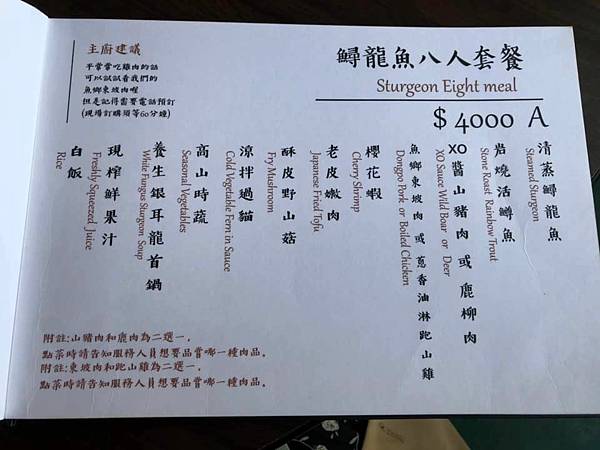 鱘龍魚八人套餐
Sturgeon Eight meal
$ 4000 A
主廚建議
平常常吃雞肉的話
可以試試看我們的
魚鄉東坡肉喔
但是記得需要電話預訂
(現場訂購須等60分鐘)
清蒸鱘龍魚
Steamed Sturgeon
岩燒活鱒魚
Stone Roast Rainbow Trout
XO醬山豬肉 或 鹿柳肉
XO Sauce Wild Boar or Deer
魚鄉東坡肉 或 蔥香油淋跑山雞
Dongpo Pork or Boiled Chicken
櫻花蝦
Cherry Shrimp
老皮嫩肉
Japanese Fried Tofu
酥皮野山菇
Fry Mushroom
涼拌過貓
Cold Vegetable Fern in Sauce
高山時蔬
Seasonal Vegetables
養生銀耳龍首鍋
White Fungus Sturgeon Soup
現榨鮮果汁
Freshly Squeezed Juice
白飯
Rice
附註:山豬肉和鹿肉為二選一,
點菜時請告知服務人員想要品嘗哪一種肉品。
附註:東坡肉和跑山雞為二選一,
點菜時請告知服務人員想要品嘗哪一種肉品。